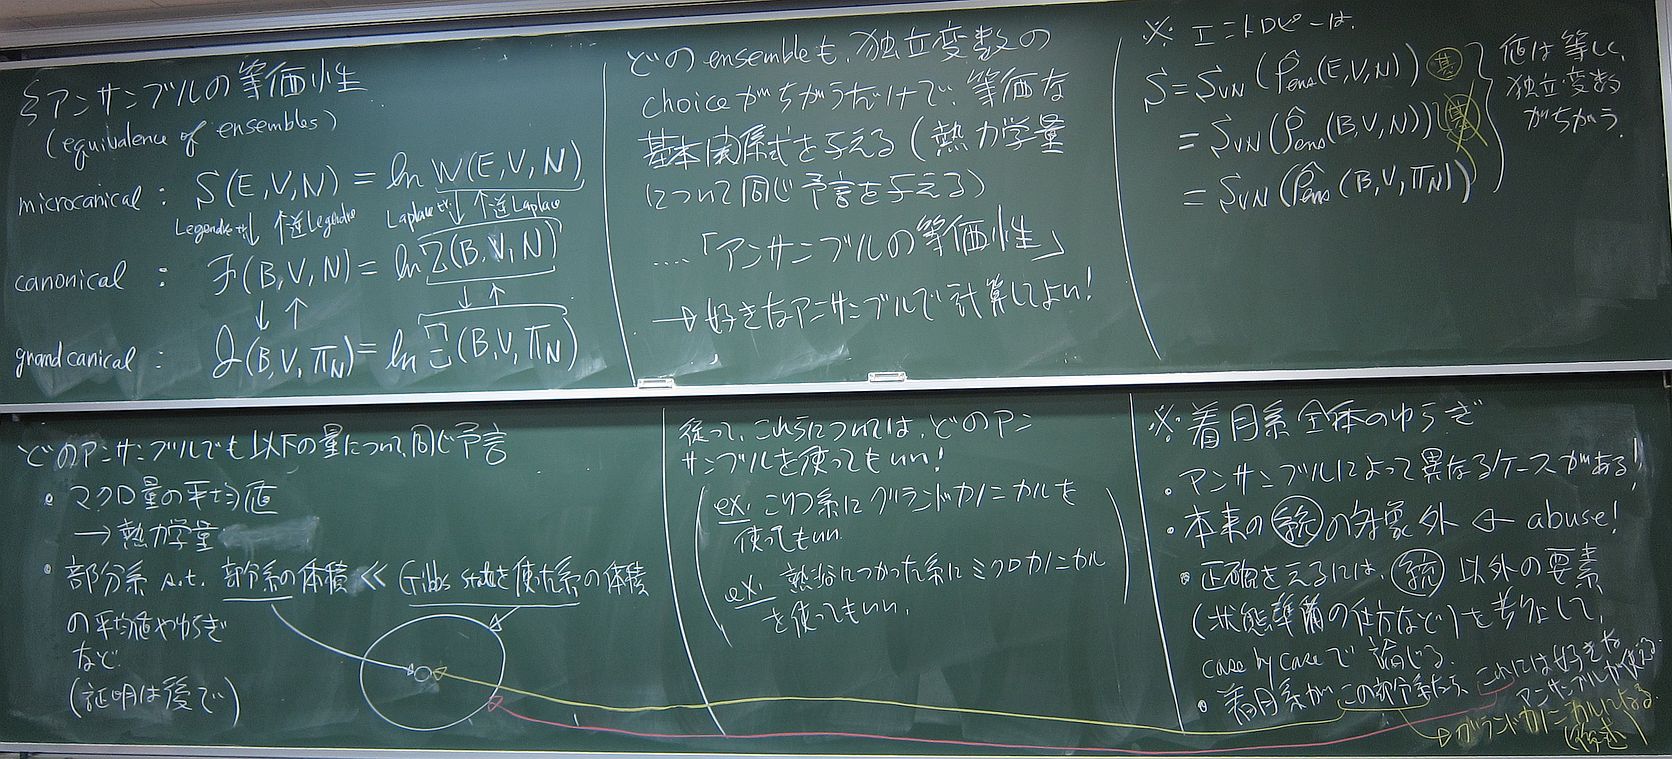 §アンサンブルの等価性
(equivalence of ensembles)
microcanical : S(E,V,N) = ln W(E,V,N)
Legendre ↓ ↑逆Legendre Laplace ↓ ↑逆Laplace
canonical : F(B,V,N) = ln Z(B,V,N)
↓ ↑ ↓ ↑
grandcanical : J(B,V,πN) = ln Ξ(B,V,πN)
どのensembleも、独立変数の
choiceがちがうだけで、等価な
基本関係式を与える(熱力学量
について同じ予言を与える)
....「アンサンブルの等価性」
→好きなアンサンブルで計算してよい!
※ エントロピーは、
S = SvN(ρ̂ens(E,V,N)) 基
= SvN(ρ̂ens(B,V,N)) 基
= SvN(ρ̂ens(B,V,πN))
値は等しく、
独立変数
がちがう.
どのアンサンブルでも以下の量について、同じ予言
・マクロ量の平均値
→熱力学量
・部分系 s.t. 部分系の体積 ≪ Gibbs stateを使った系の体積
の平均値やゆらぎ
など.
(証明は後で)
従って、これらについては、どのアン
サンブルを使ってもいい!
ex. こりつ系にグランドカノニカルを
使ってもいい.
ex. 熱浴につかった系にミクロカノニカル
を使ってもいい.
※ 着目系全体のゆらぎ
・アンサンブルによって異なるケースがある!
・本来の統の対象外 ← abuse!
・正確を言えるには、統以外の要素
(状態準備の仕方など)を考慮して、
case by caseで論じる.
・着目系がこの部分系なら、これには好きな
アンサンブルが使える
→グランドカノニカルになる
(後述)